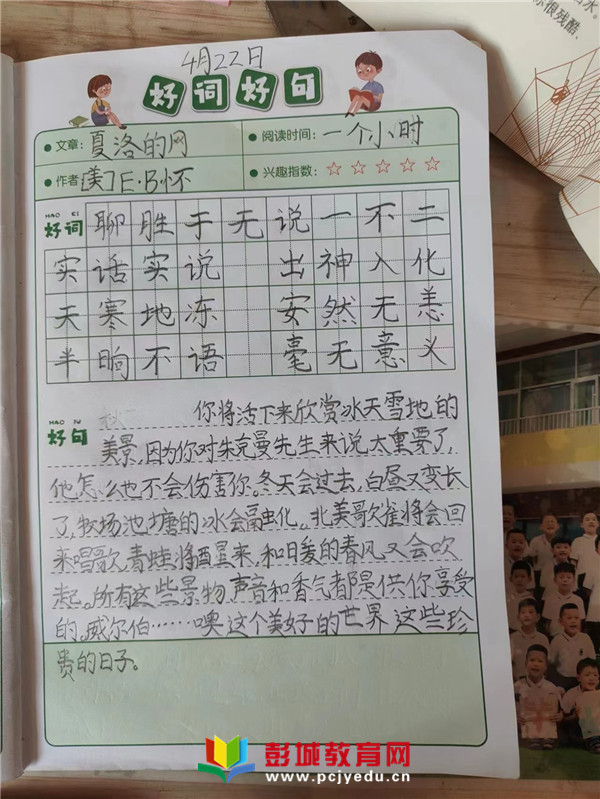 水。
你很残酷,
4月22日
好词好句
文章: 夏洛的网
阅读时间: 一个小时
作者 [美]E·B·怀
兴趣指数: ☆☆☆☆☆
HAO CI
好词 聊胜于无说一不二
实话实说 出神入化
天寒地冻 安然无恙
半晌不语 毫无意义
HAO JU
好句 你将活下来欣赏冰天雪地的
美景,因为你对朱克曼先生来说太重要了,
他怎么也不会伤害你。冬天会过去,白昼又变长
了,牧场池塘的冰会融化。北美歌雀将会回
来唱歌,青蛙将醒来,和暖的春风又会吹
起。所有这些景物声音和香气都是供你享受
的。威尔伯……噢这个美好的世界 这些珍
贵的日子。
彭城教育网
www.pcjyedu.cn